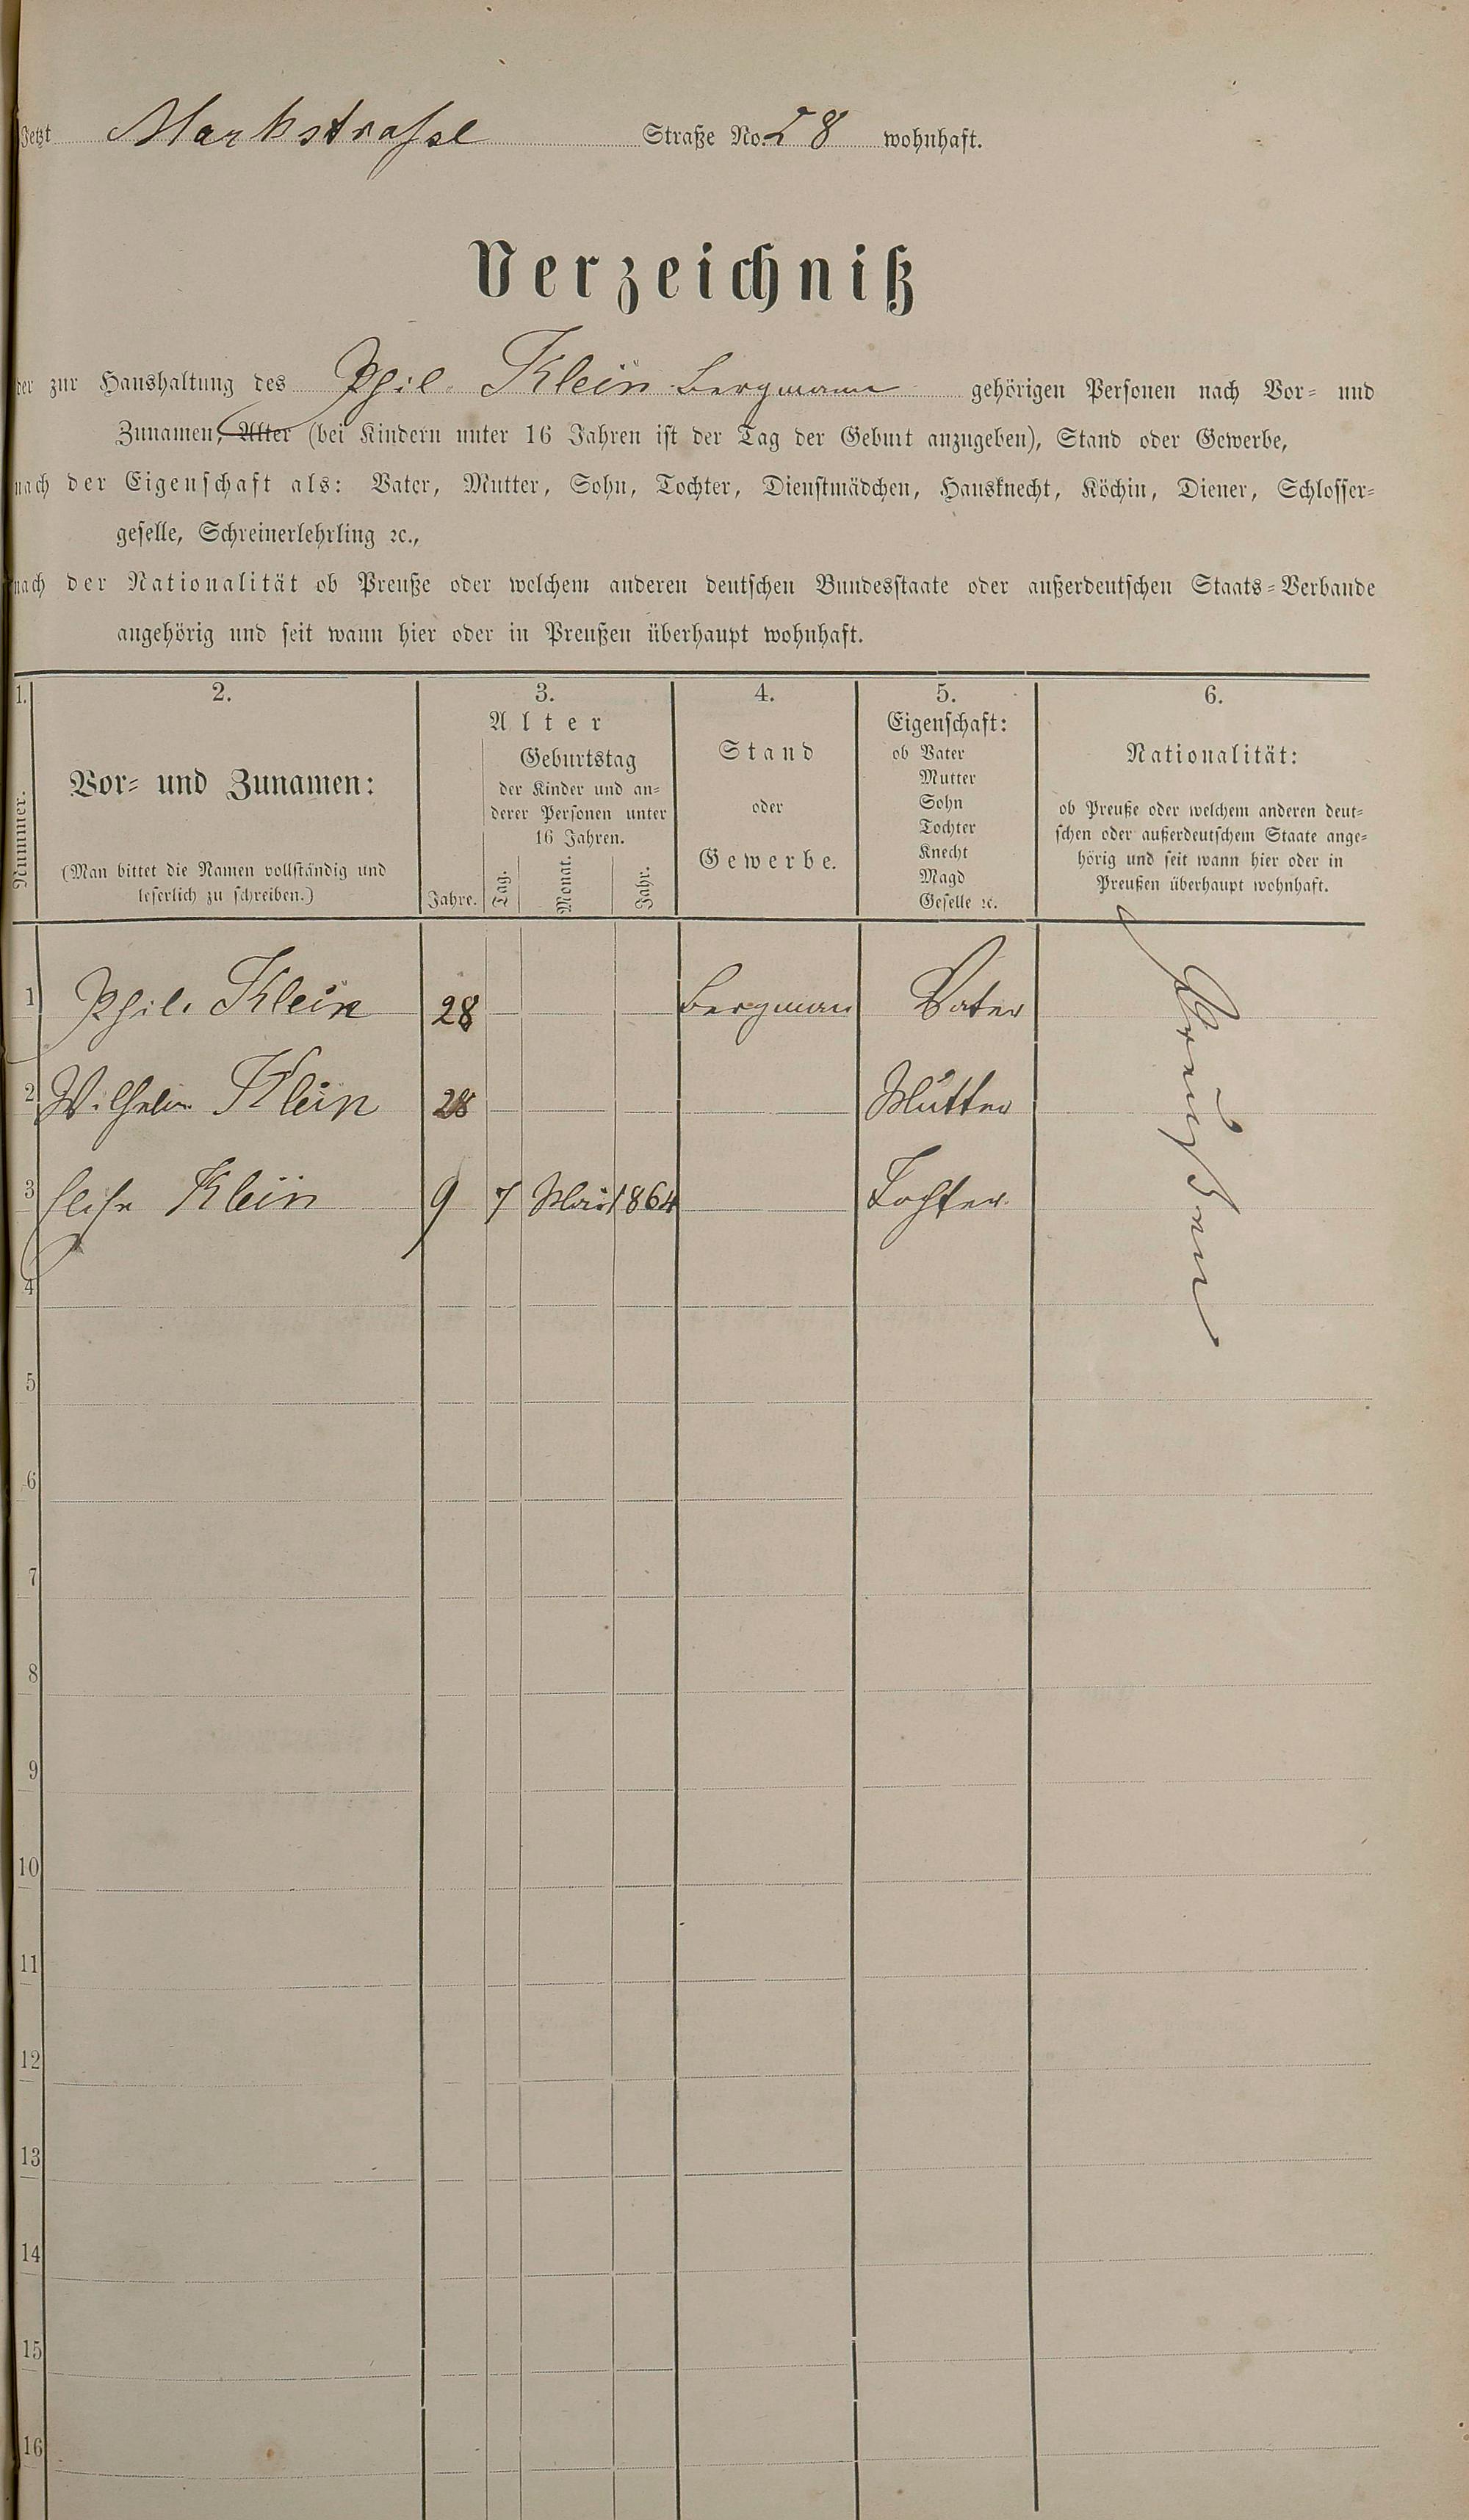 Jetzt Markstraße Straße No. 58 wohnhaft.
Verzeichniß
der zur Haushaltung des Phil. Klein Bergmann gehörigen Personen nach Vor- und
Zunamen, Alter (bei Kindern unter 16 Jahren ist der Tag der Geburt anzugeben), Stand oder Gewerbe,
nach der Eigenschaft als: Vater, Mutter, Sohn, Tochter, Dienstmädchen, Hausknecht, Köchin, Diener, Schlosser-
geselle, Schreinerlehrling ꝛc.,
nach der Nationalität ob Preuße oder welchem anderen deutschen Bundesstaate oder außerdeutschen Staats-Verbande
angehörig und seit wann hier oder in Preußen überhaupt wohnhaft.
1. 2. 3. 4. 5. 6.
Nummer.
Vor- und Zunamen:
(Man bittet die Namen vollständig und
leserlich zu schreiben.)
Alter
Jahre.
Geburtstag
der Kinder und an-
derer Personen unter
16 Jahren.
Tag. Monat. Jahr.
Stand
oder
Gewerbe.
Eigenschaft:
ob Vater
Mutter
Sohn
Tochter
Knecht
Magd
Geselle ꝛc.
Nationalität:
ob Preuße oder welchem anderen deut-
schen oder außerdeutschem Staate ange-
hörig und seit wann hier oder in
Preußen überhaupt wohnhaft.
1 Phil. Klein 28 Bergman Vater
2 Wilhelm Klein 28 Mutter
3 Klein 9 7 1864 Tochter
Preußen
4
5
6
7
8
9
10
11
12
13
14
15
16